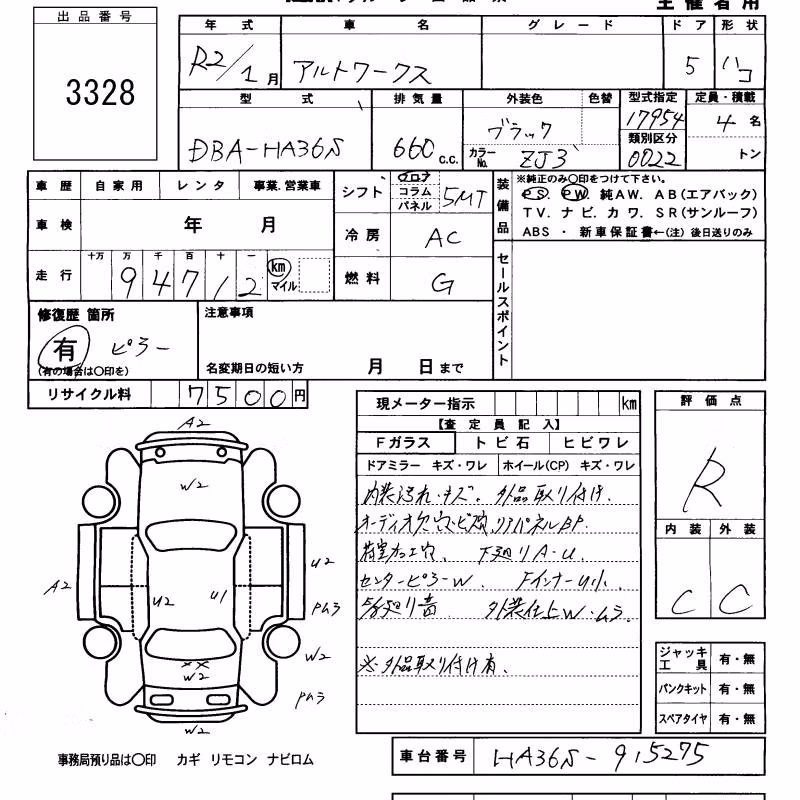 主催者用
出品番号
3328
年式 車名 グレード ドア 形状
R2/1月 アルトワークス 5 ハコ
型式 排気量 外装色 色替 型式指定 定員・積載
DBA-HA36S 660c.c. ブラック 17954 4名
カラーNo. ZJ3 類別区分 0022 トン
車歴 自家用 レンタ 事業.営業車
シフト フロア コラム パネル 5MT
装備品 ※純正のみ〇印をつけて下さい。
PS. PW. 純AW. AB(エアバック)
TV. ナビ. カワ. SR(サンルーフ)
ABS ・ 新車保証書←(注) 後日送りのみ
車検 年 月
冷房 AC
走行 十万 万 千 百 十 一 km マイル
94712
燃料 G
セールスポイント
修復歴 箇所
有 ピラー
(有の場合は〇印を)
注意事項
名変期日の短い方 月 日まで
リサイクル料 7500円
現メーター指示 km
【査定員記入】
Fガラス トビ石 ヒビワレ
ドアミラー キズ・ワレ ホイール(CP) キズ・ワレ
内装汚れ・キズ。外品取り付け.
オーディオ欠.穴.ビス穴.リアパネルBP.
荷室カコウ穴、下廻りA-U.
センターピラーW. Fインナーu小.
外装仕上W.ムラ.
※外品取り付け有.
評価点
R
内装 外装
C C
ジャッキ工具 有・無
パンクキット 有・無
スペアタイヤ 有・無
A2
W2
A2
U2
U1
U2
Pムラ
W2
XX
W2
Pムラ
W2
事務局預り品は〇印 カギ リモコン ナビロム
車台番号 HA36S-915275